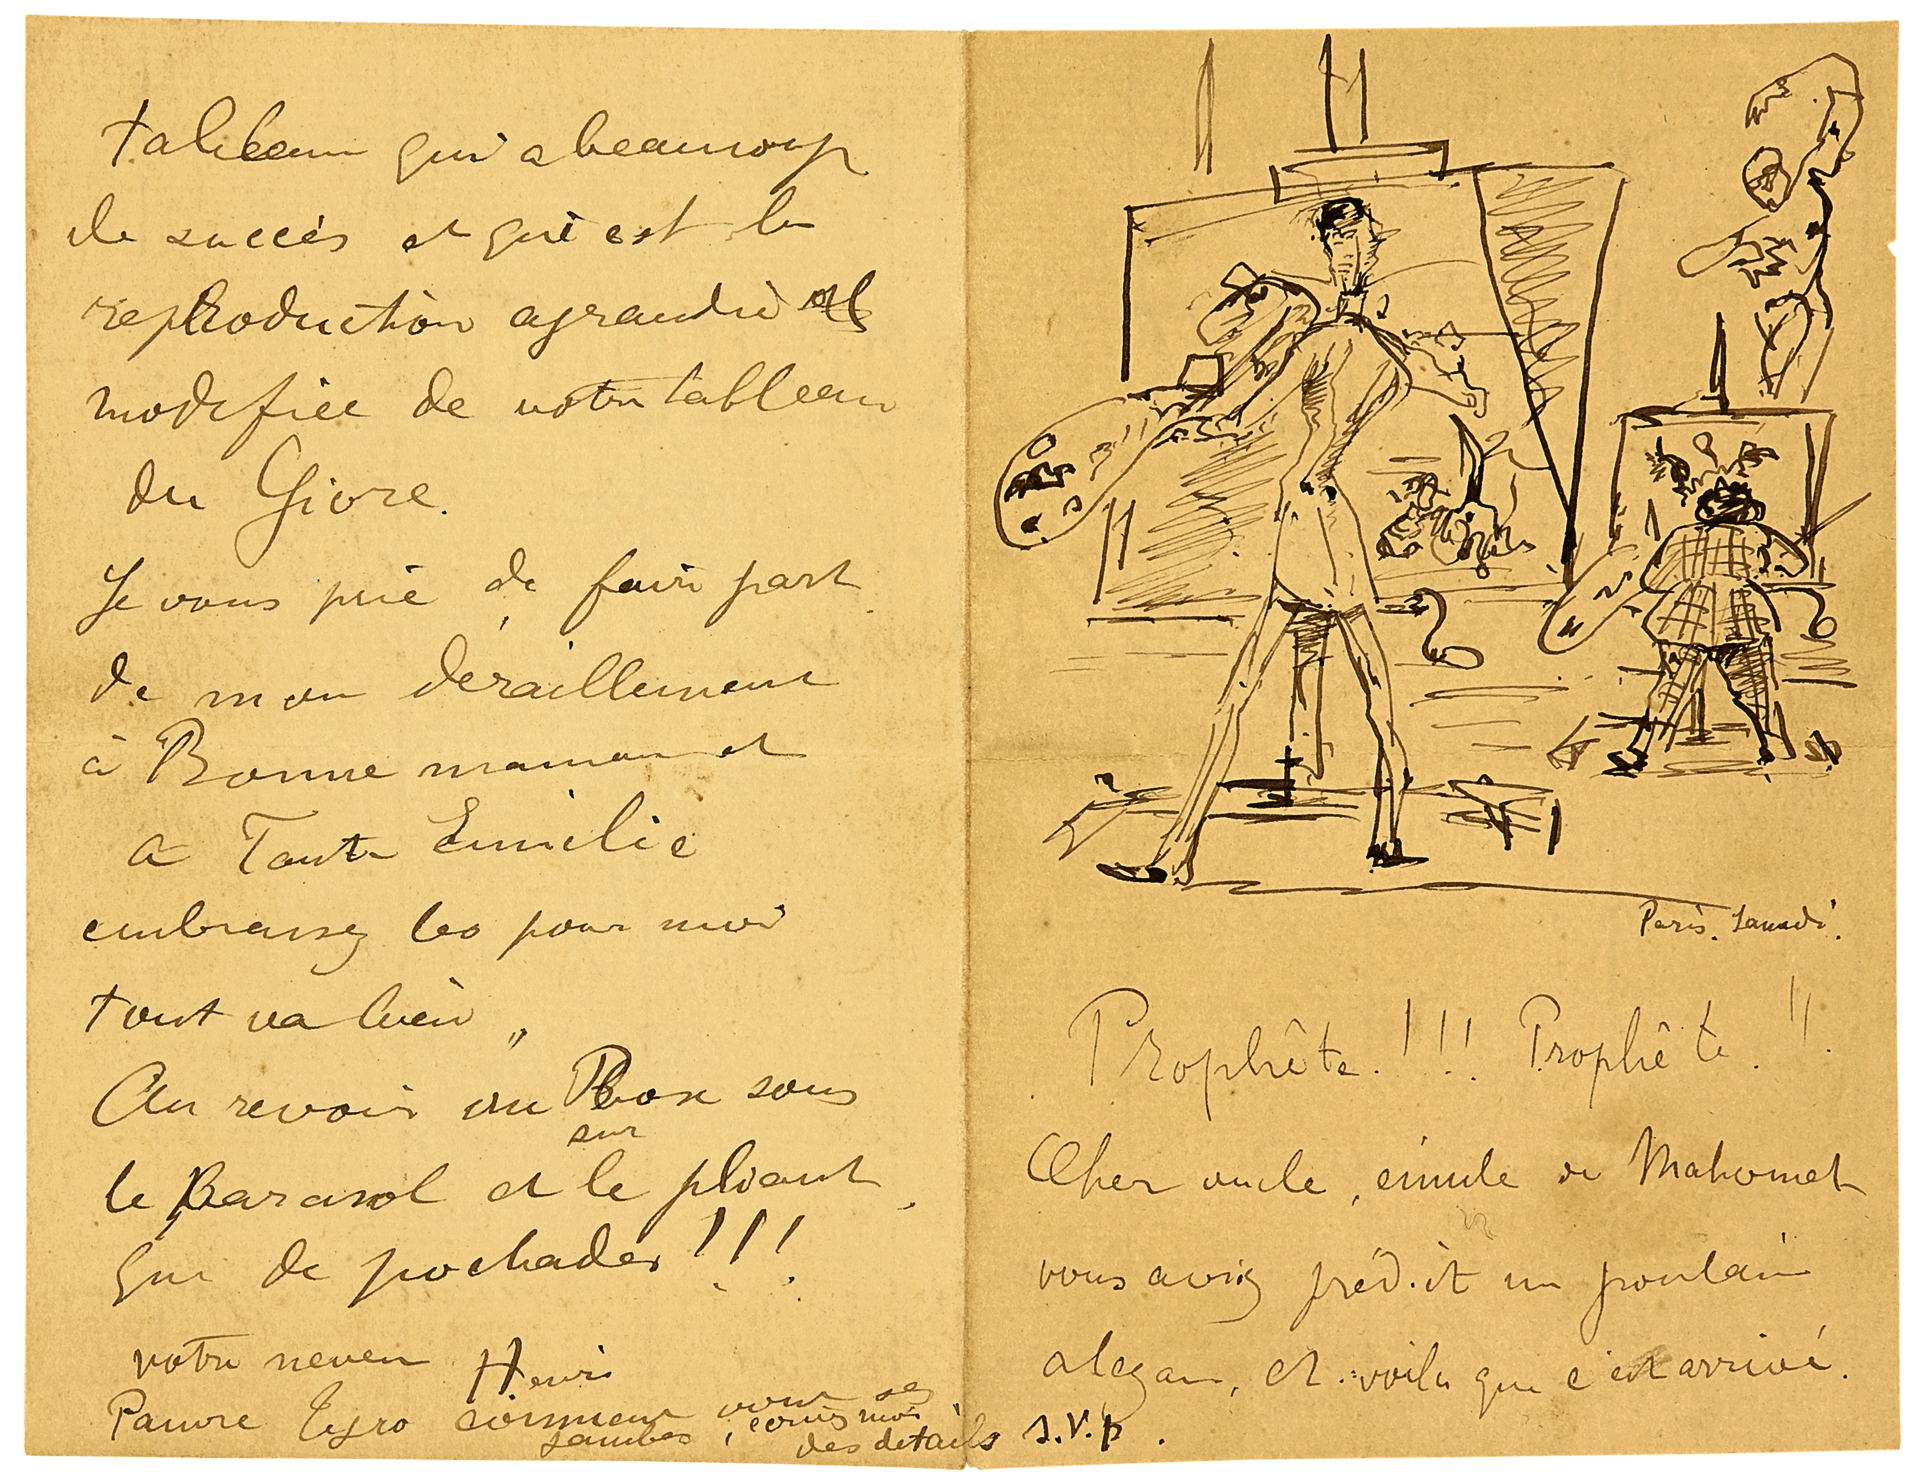 Paris. Samedi.
Prophête.!!! Prophête.!!.
Cher oncle, émule de Mahomet
vous aviez prédit un poulain
alezan, et voila que c'est arrivé.
tableau qui a beaucoup
de succès et qui est la
reproduction agrandie et
modifiée de votre tableau
du Givre.
Je vous prie de faire part
de mon déraillement
à Bonne maman et
a Tante Emilie
embrassez les pour moi
tout va bien
Au revoir au Bosc sous
sur
le Parasol et le pliant,
que de pochades!!!
votre neveu Henri
Pauvre Tyro comment vont ses
jambes, écris moi
des details s.v.p.